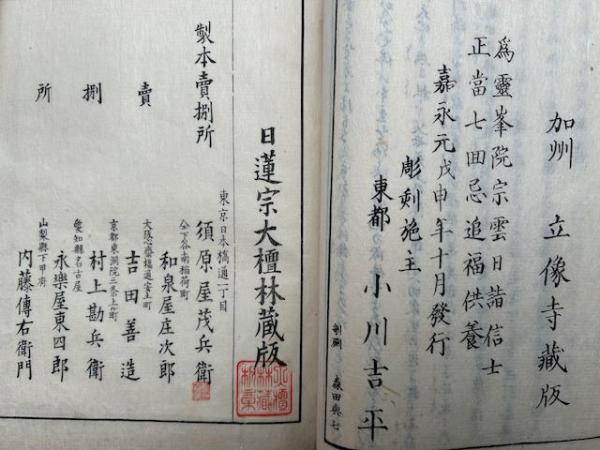 加州 立像寺蔵版
為靈峯院宗雲日諧信士
正當七回忌追福供養
嘉永元戊申年十月發行
彫刻施主
東都 小川吉平
剞劂 森田與七
日蓮宗大檀林蔵版
製本賣捌所
東京日本橋通一丁目
須原屋茂兵衛
仝下谷南稲荷町
和泉屋庄次郎
賣捌所
大阪心斎橋通安土町
吉田善造
京都東洞院三条上町
村上勘兵衛
愛知縣名古屋
永樂屋東四郎
山梨縣下甲府
内藤傳右衛門